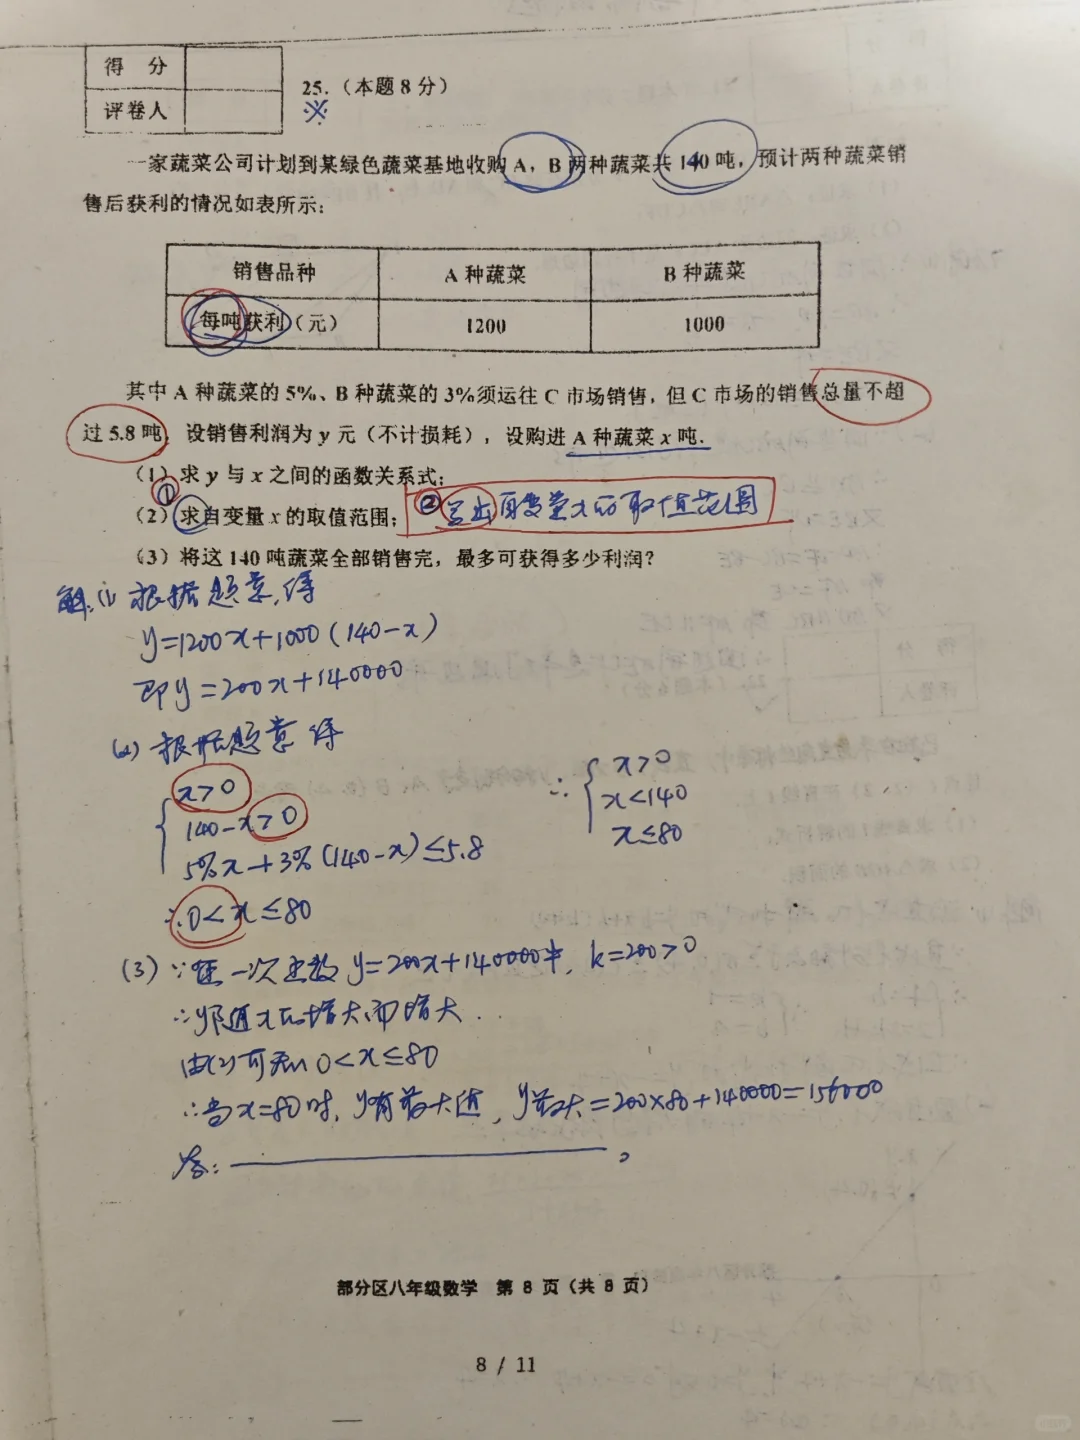 得 分
评卷人
25.（本题8分）
※
一家蔬菜公司计划到某绿色蔬菜基地收购 A，B 两种蔬菜共 140 吨，预计两种蔬菜销
售后获利的情况如表所示：
销售品种 A 种蔬菜 B 种蔬菜
每吨获利（元） 1200 1000
其中 A 种蔬菜的 5%、B 种蔬菜的 3%须运往 C 市场销售，但 C 市场的销售总量不超
过 5.8 吨．设销售利润为 y 元（不计损耗），设购进 A 种蔬菜 x 吨．
（1）求 y 与 x 之间的函数关系式；
（2）①求自变量 x 的取值范围； ②写出自变量x的取值范围
（3）将这 140 吨蔬菜全部销售完，最多可获得多少利润？
解:(1) 根据题意,得
y=1200x+1000(140-x)
即y=200x+140000
(2) 根据题意 得
x>0
140-x>0
5%x+3%(140-x)≤5.8
∴ x>0
x<140
x≤80
∴0<x≤80
(3) ∵在一次函数 y=200x+140000中, k=200>0
∴y随x的增大而增大.
由(2)可知 0<x≤80
∴当x=80时, y有最大值, y最大=200×80+140000=156000
答: 。
部分区八年级数学 第 8 页（共 8 页）
8 / 11